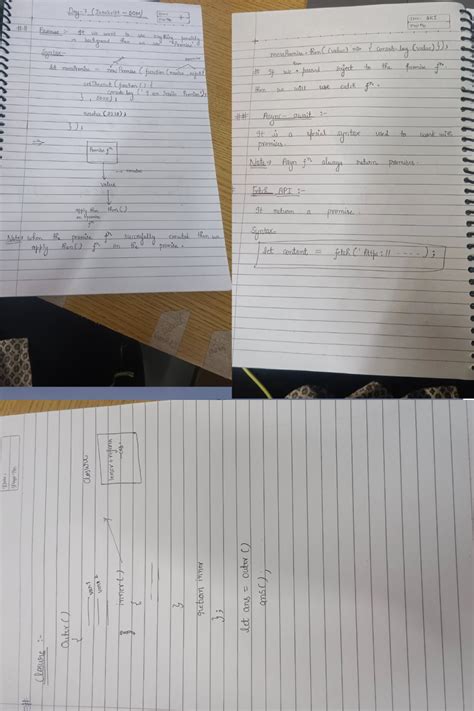 Day-7 (Javascript - DOM)
## Promise :- If we want to use anything parallely
in background then we use "Promise"
Syntax
let meraPromise = new Promise (function (resolve, reject)
setTimeout (function () {
console.log ("I am inside Promise");
}, 5000);
resolve (2233);
});
=>
Promise fn
resolve
value
apply then then()
on Promise
fn
Note: when the promise fn successfully created then we
apply then() fn on the promise.
meraPromise.then((value) => { console.log (value)});
If we found reject to the Promise fn
then we will use catch fn.
## Async - await :-
It is a special syntax used to work with
promises.
Note => Async fn always return promises.
Fetch API :-
It return a promise.
Syntax
let content = fetch('https:// ....);
# Closure :-
outer()
{
var1
var2
inner()
{
}
return inner
};
let ans = outer()
ans();
closure